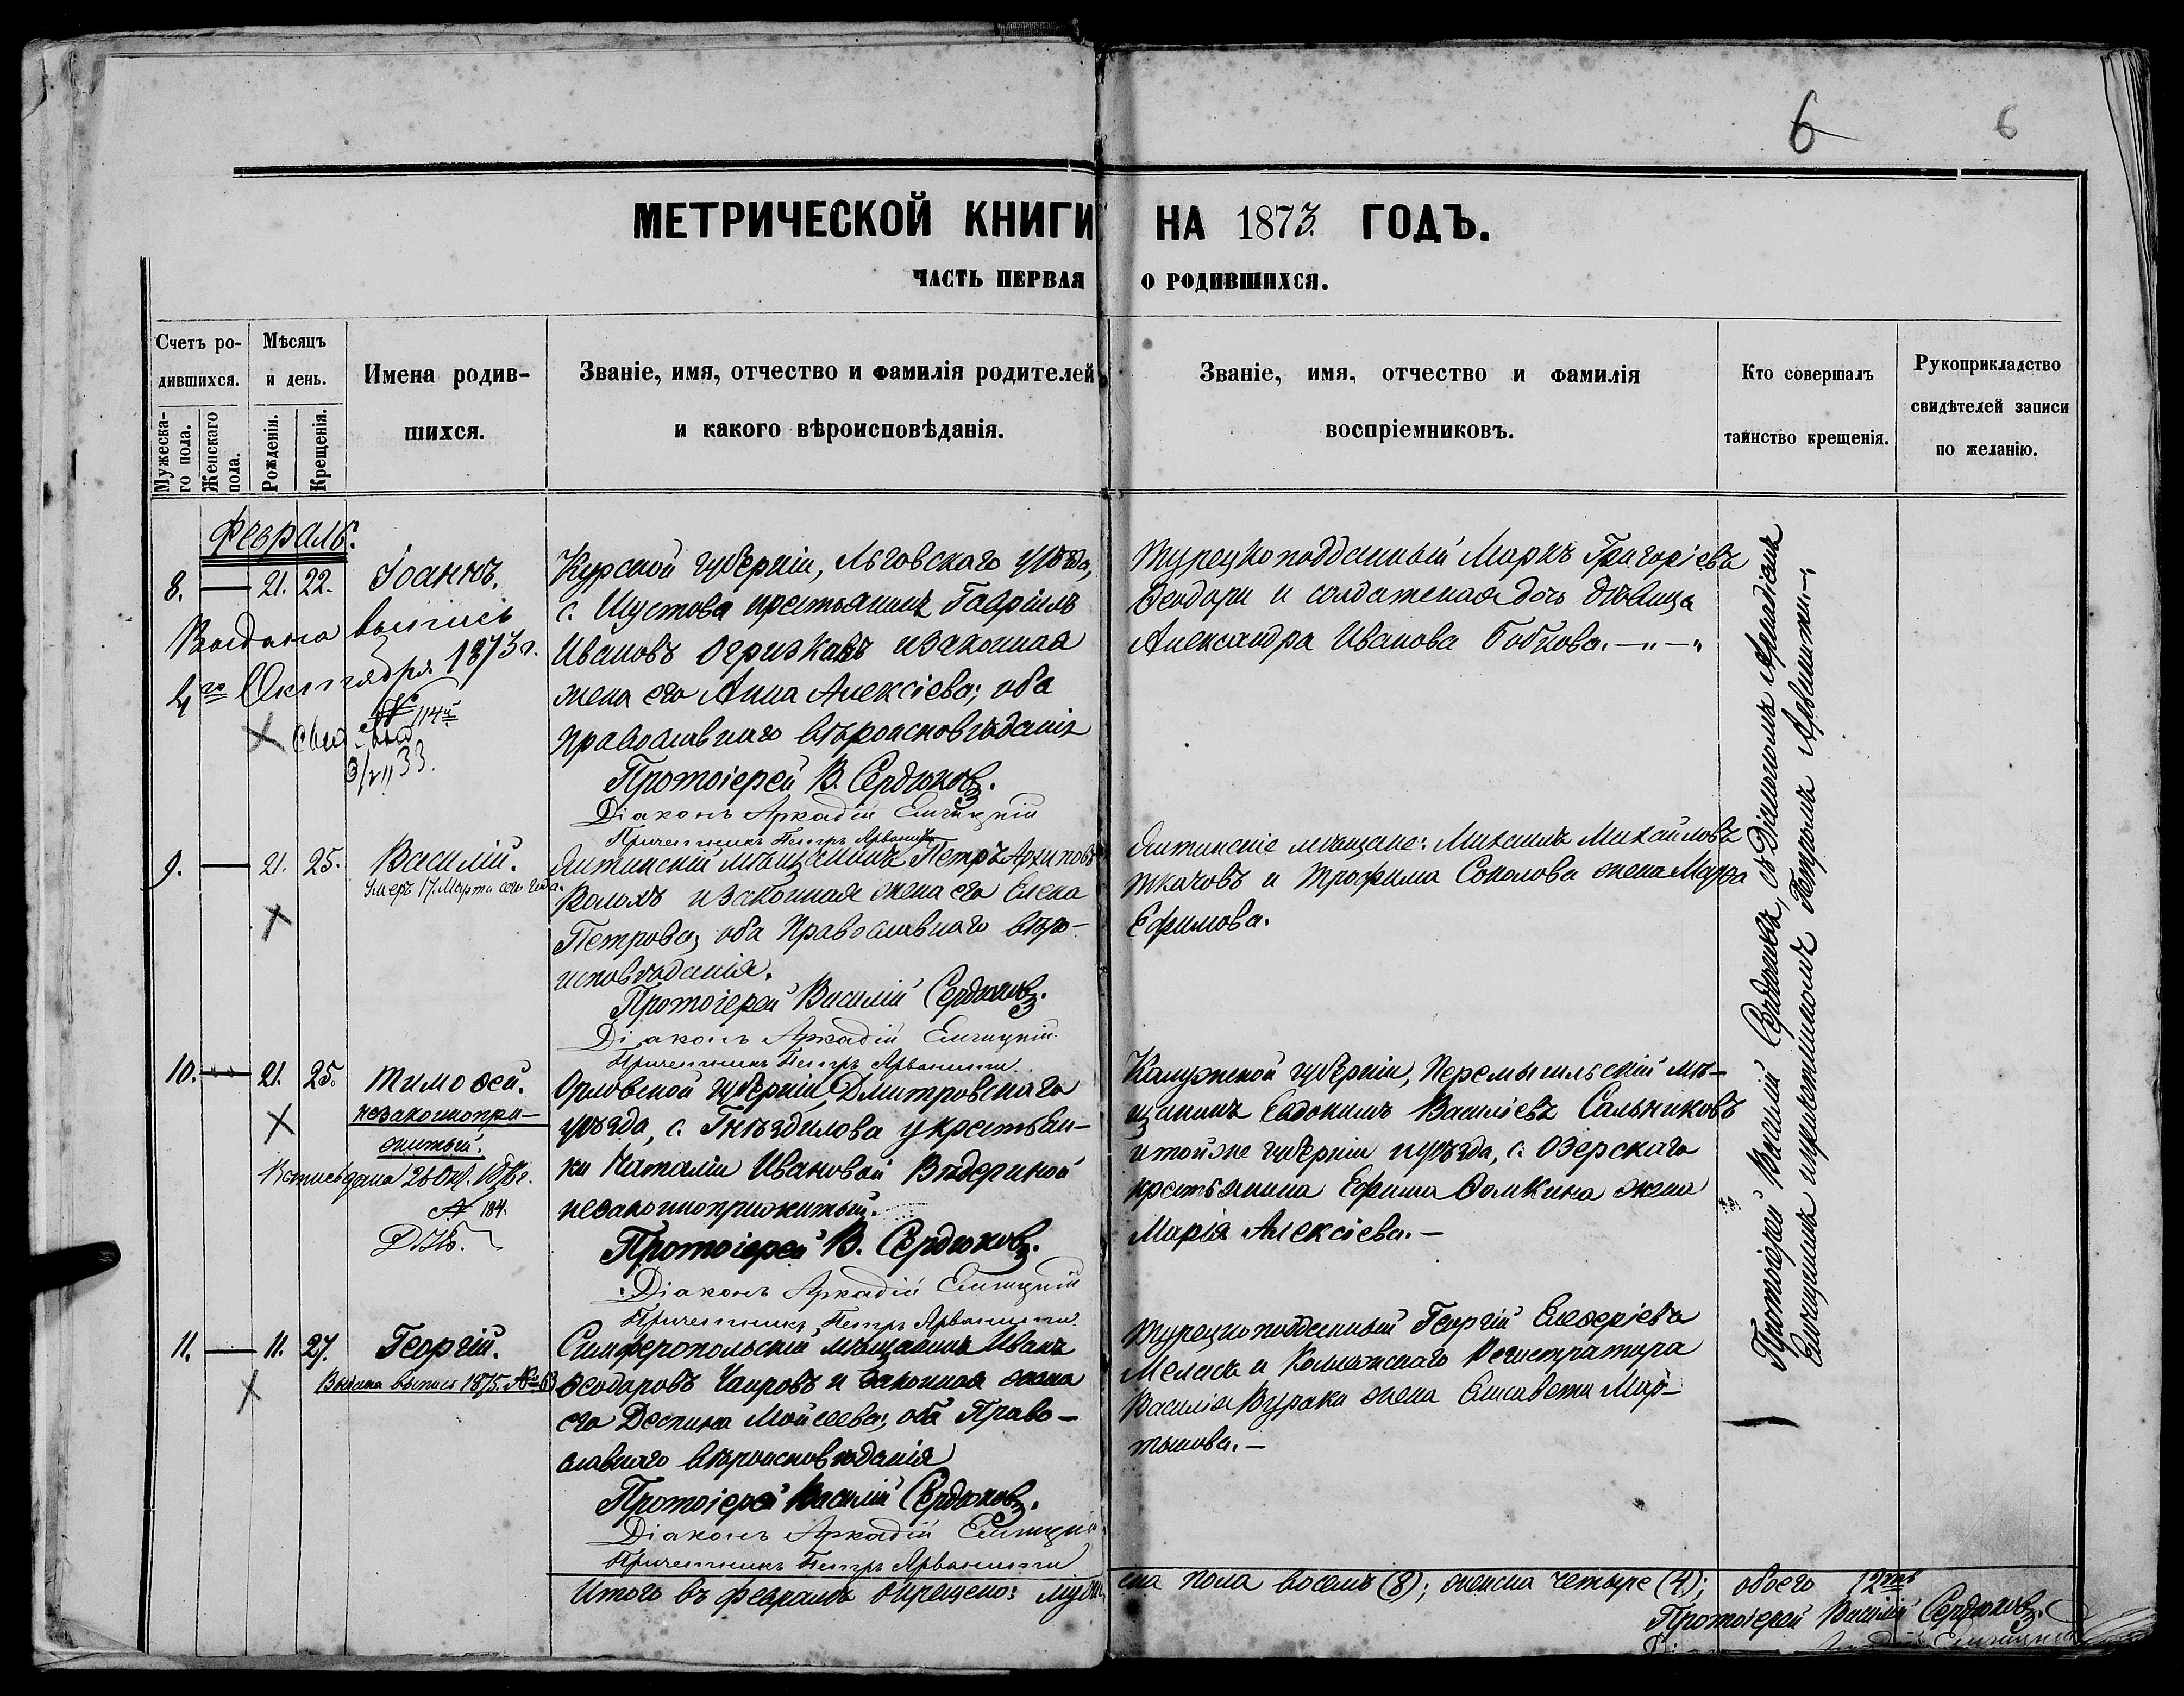 6
6
МЕТРИЧЕСКОЙ КНИГИ НА 1873. ГОДЪ.
ЧАСТЬ ПЕРВАЯ О РОДИВШИХСЯ.
Счетъ ро-
дившихся.
Мужеска-
го пола.
Женскаго
пола.
Мѣсяцъ
и день.
Рожденія.
Крещенія.
Имена родив-
шихся.
Званіе, имя, отчество и фамилія родителей
и какого вѣроисповѣданія.
Званіе, имя, отчество и фамилія
воспріемниковъ.
Кто совершалъ
таинство крещенія.
Рукоприкладство
свидѣтелей записи
по желанію.
Февраль.
8. — 21. 22. Іоаннъ.
Выдана выпись
4го Октября 1873 г.
№ 114
33.
Курской губерніи, Льговскаго уѣзда,
с. Шустова крестьянинъ Гавріилъ
Ивановъ Огризковъ и законная
жена его Анна Алексіева; оба
православнаго вѣроисповѣданія
Протоіерей В. Сердюковъ.
Діаконъ Аркадій
Причетникъ Петръ Арванити
Турецкоподданный Маркъ Григоріевъ
Ѳеодори и солдатская дочь дѣвица
Александра Иванова Бобкова. —"—"
9. — 21. 25. Василій.
Умеръ 17 Марта сего года.
Ялтинскій мѣщанинъ Петръ Архиповъ
Волохъ и законная жена его Елена
Петрова; оба Православнаго вѣро-
исповѣданія.
Протоіерей Василій Сердюковъ.
Діаконъ Аркадій
Причетникъ Петръ Арванити.
Ялтинскіе мѣщане: Михаилъ Михайловъ
Ткачовъ и Трофима Соколова жена Марѳа
Ефимова.
10. — 21. 25. Тимоѳей.
незаконопри-
житый.
№ 184.
Орловской губерніи, Дмитровскаго
уѣзда, с. Гнѣздилова у крестьян-
ки Наталіи Ивановой
незаконноприжитый.
Протоіерей В. Сердюковъ.
Діаконъ Аркадій
Причетникъ Петръ Арванити.
Калужской губерніи, Перемышльскій мѣ-
щанинъ Евдокимъ Василіевъ Сальниковъ
и той же губерніи и уѣзда, с. Озерскаго
крестьянина Ефима Ѳомкина жена
Марія Алексіева. —
11. — 11. 27. Георгій.
Выдана выпись 1875. №
Симферопольскій мѣщанинъ Иванъ
Ѳеодоровъ Чаировъ и законная жена
его Деспина Мойсеева; оба Право-
славнаго вѣроисповѣданія
Протоіерей Василій Сердюковъ.
Діаконъ Аркадій
Причетникъ Петръ Арванити
Турецкоподданный Георгій Елеѳеріевъ
Меласъ и Коллежскаго Регистратора
Василія Вурака жена Елисавета Мар-
тынова. —
Протоіерей Василій Сердюковъ, съ Діакономъ Аркадіемъ
и причетникомъ Петромъ Арванити. —
Итого въ февралѣ окрещено: мужеска пола восемь (8); женска четыре (4); обоего 12ть
Протоіерей Василій Сердюковъ.